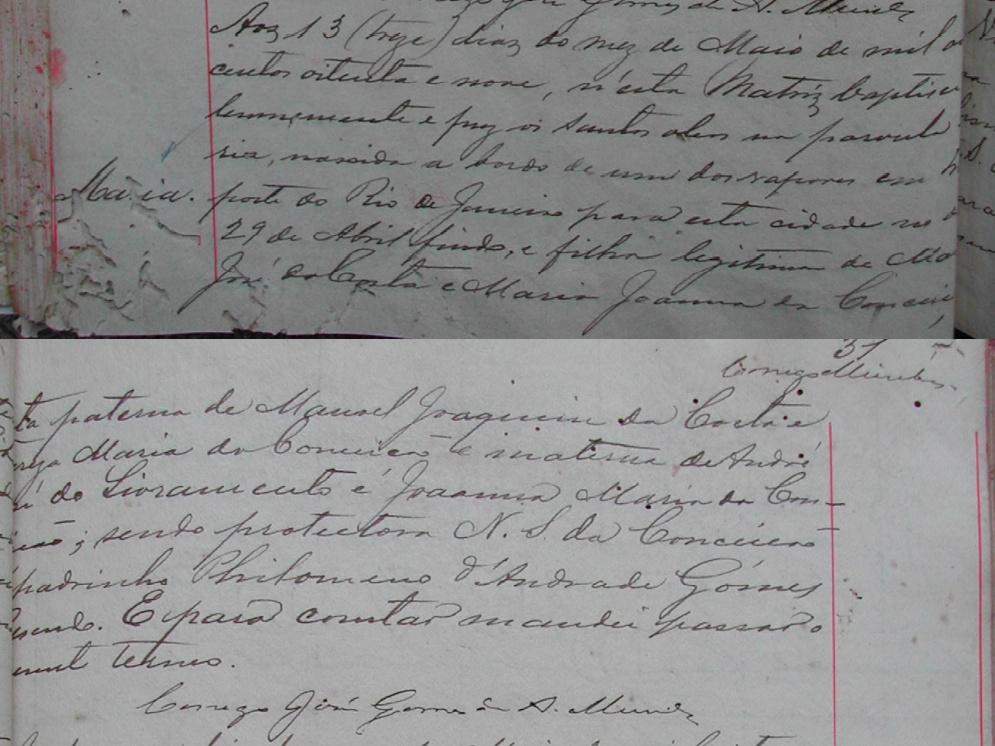 Gomes de A. Mendes
Aos 13 (treze) dias do mez de Maio de mil
centos oitenta e nove, n'esta Matriz baptisei
lemnemente e puz os santos oleos na parvula
ria, nascida a bordo de um dos vapores em
Maria.
porte do Rio de Janeiro para esta cidade no
29 de Abril findo, e filha legitima de Ma
José da Costa e Maria Joanna da Concei
31
Conego Mendes
ta paterna de Manoel Joaquim da Costa e
Maria da Conceicão e materna de André
do Livramento e Joanna Maria da Con-
; sendo protectora N. S. da Conceicão
padrinho Philomeno d'Andrade Gómes
E para constar mandei passar o
termo.
Conego José Gomes de A. Mendes